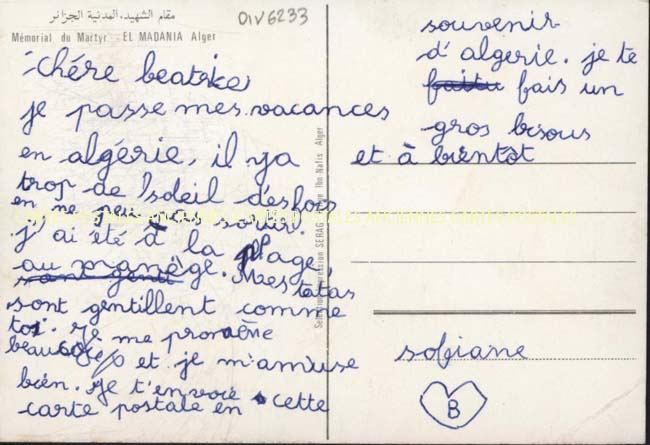 مقام الشهيد، المدنية الجزائر
DIV6233
Mémorial du Martyr - EL MADANIA Alger
chére beatrice
je passe mes vacances
en algérie, il ya
trop de soleil dehors
en ne peus pas sortir.
j'ai été à la plage
au manège. Mes tatas
sont gentillent comme
toi. Je me promène
beaucoup et je m'amuse
bien. Je t'envoie cette
carte postale en
souvenir
d'algerie. je te
fais un
gros bisous
et à bientôt
sofiane
B
Ibn Nafis Alger